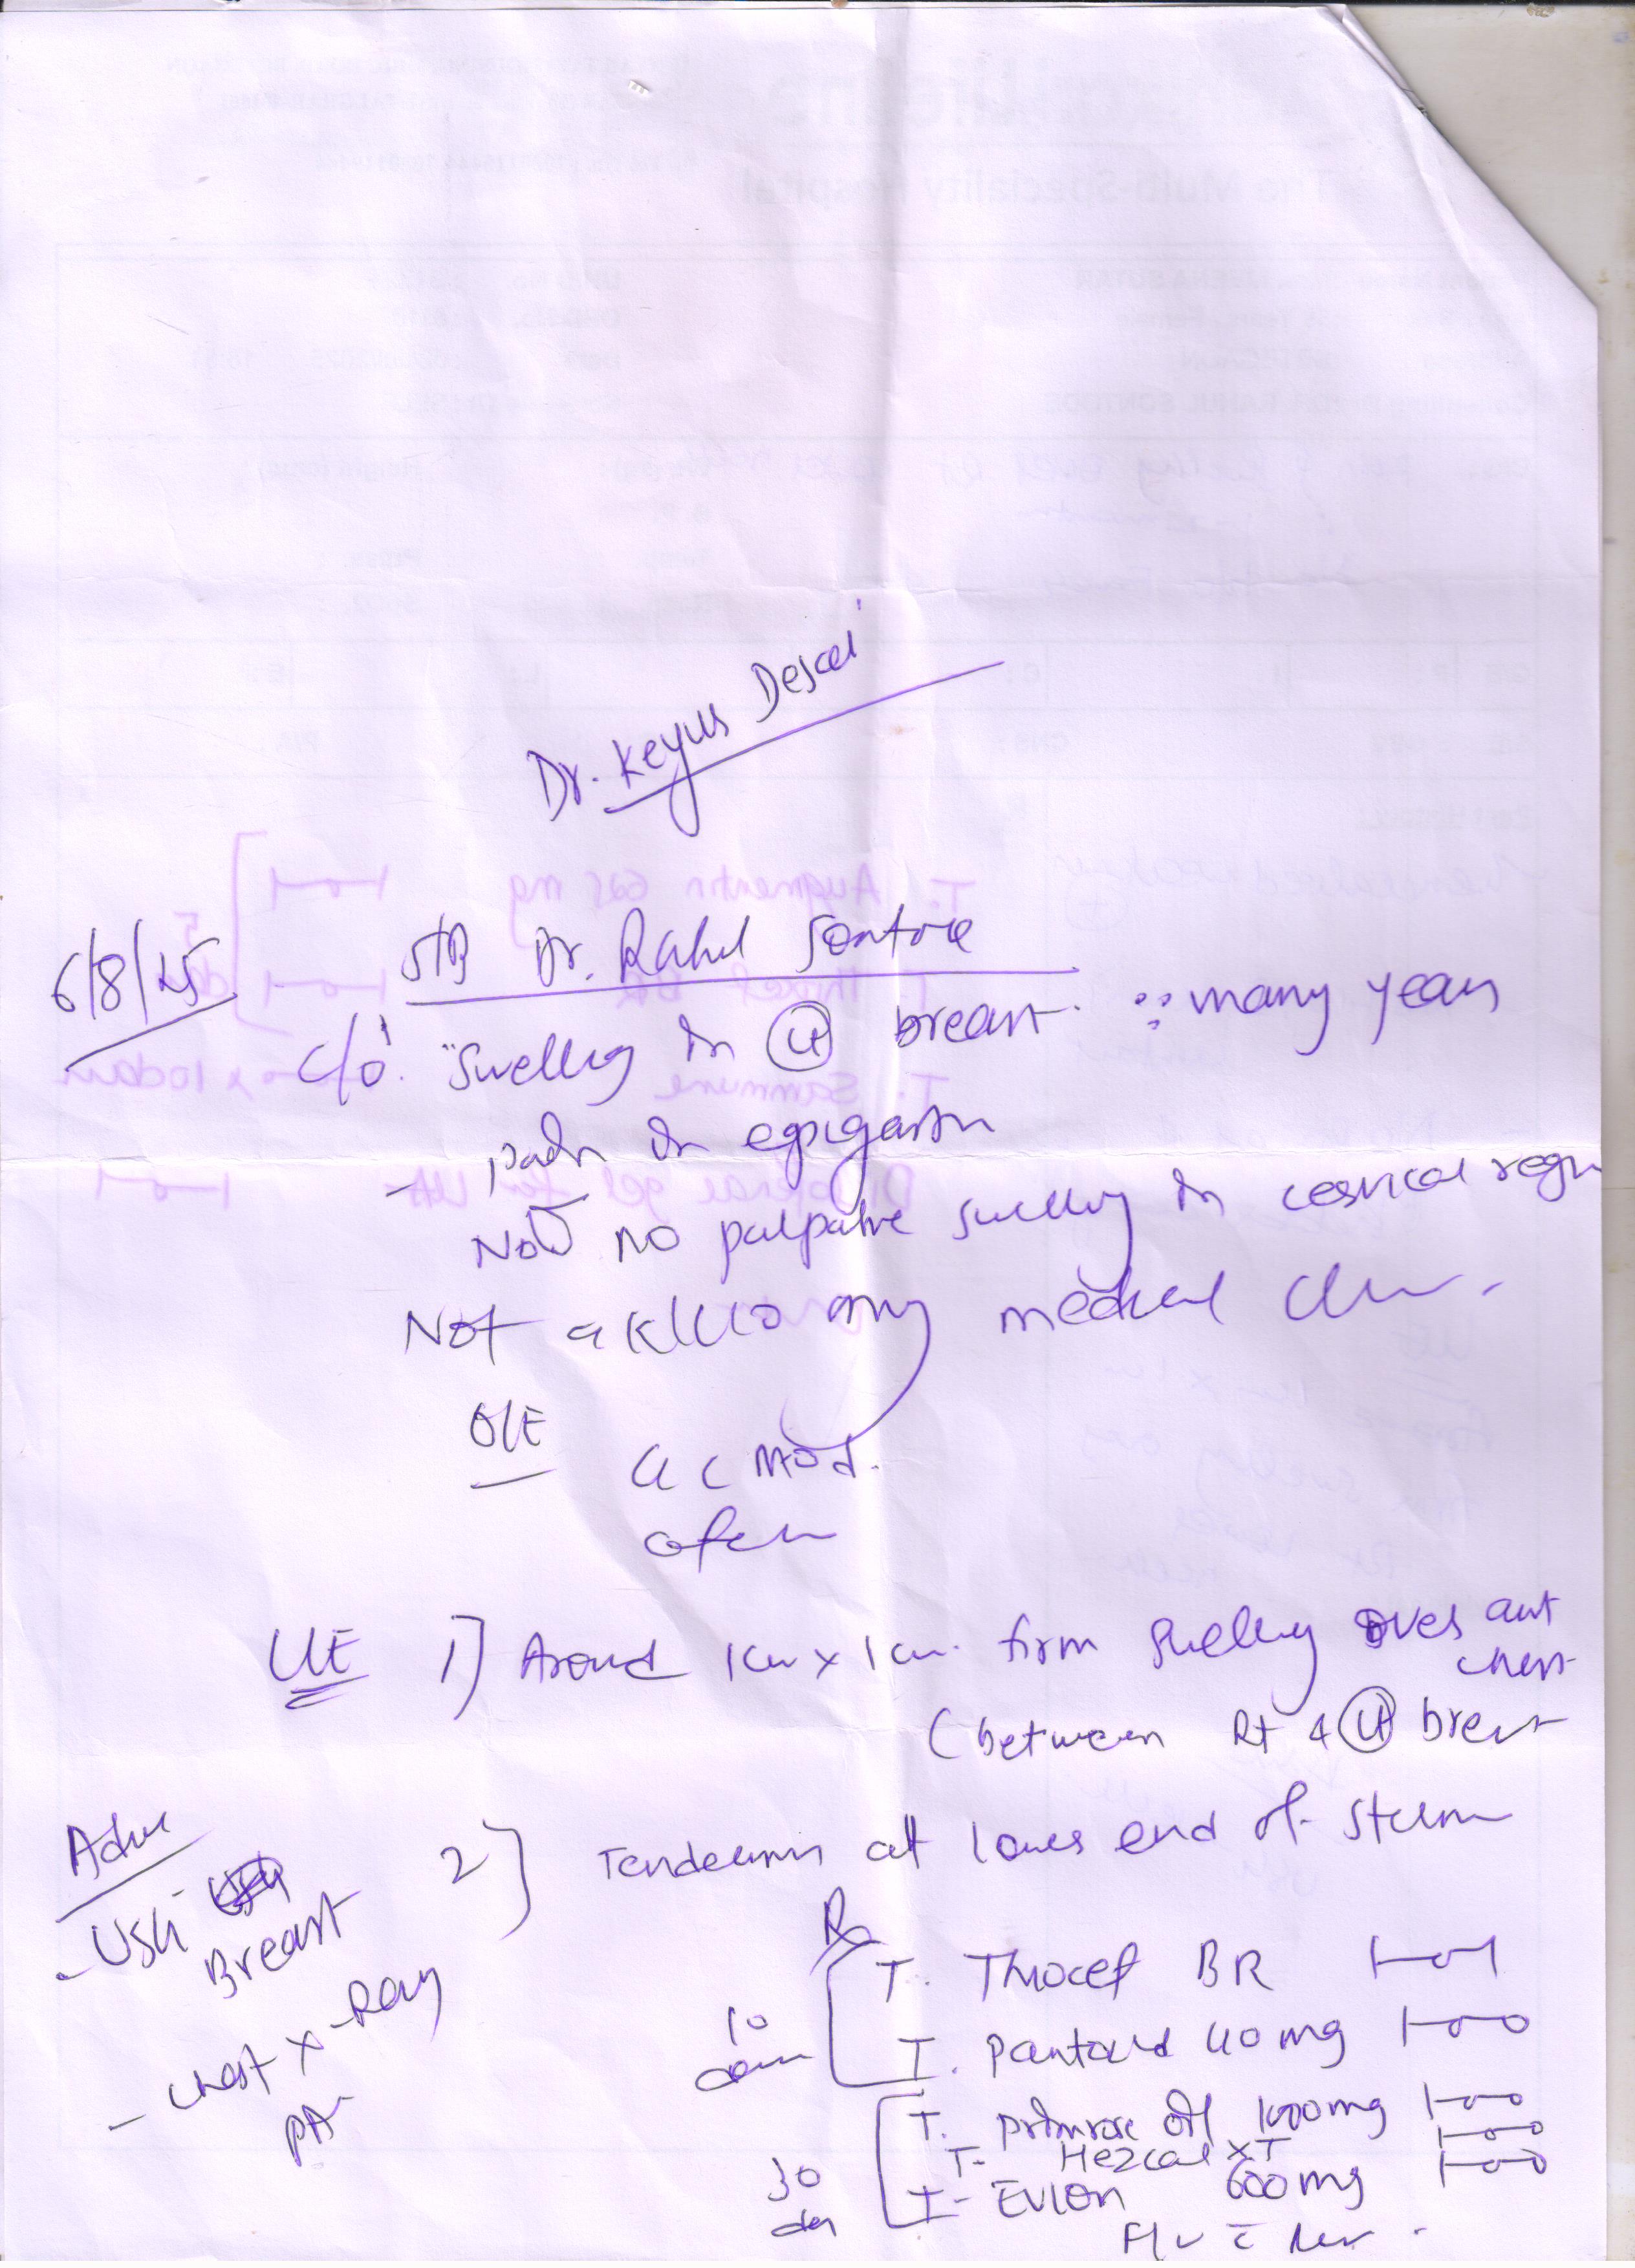 Dr. Keyus Desai
6/8/25
S/B Dr. Rahul Sontore
c/o. "Swelling in (Lt) breast. :: many years
- pain in epigastm
Now no palpable swelling in cervical regn
Not a k/c/o any medical
O/E
G C Mod.
afeb
L/E 1] Around 1cm x 1cm. firm swelling over ant
chest
(between Rt & (Lt) breast
2] Tendernes at lower end of sternm
Adv
- USG Breast
- chest x-Ray
PA
Rx
T. Thiocef BR 1-0-1
T. Pantocid 40 mg 1-0-0
10
days
T. primrose oil 1000mg 1-0-0
T- Hezcal XT 1-0-0
T- Evion 600mg 1-0-0
30
days
F/U c̄